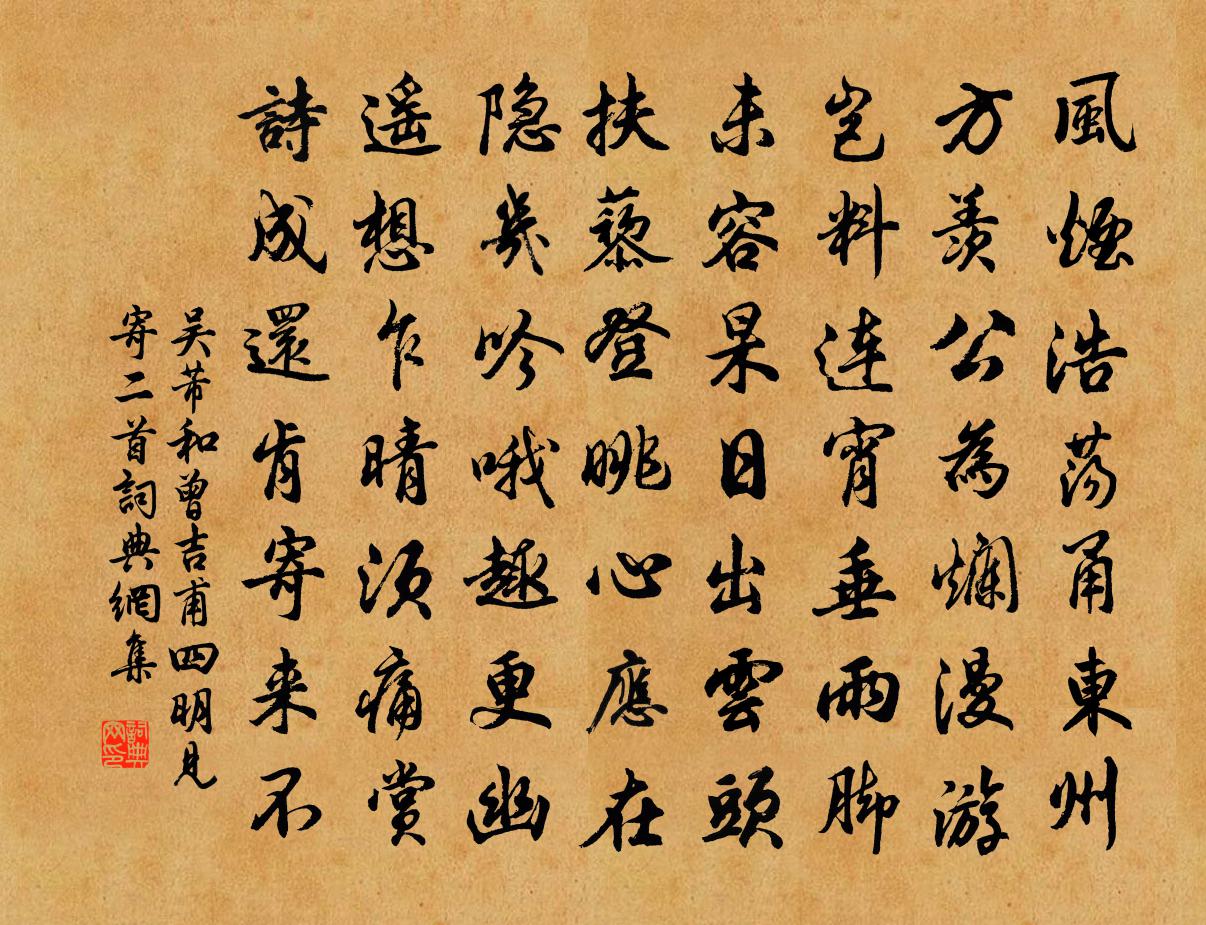 風煙浩荡甬東州
方羨公為爛漫游
岂料連宵垂雨脚
未容杲日出雲頭
扶藜登眺心應在
隐几吟哦趣更幽
遥想乍晴須痛賞
詩成還肯寄来不
吴芾和曾吉甫四明見
寄二首詞典網集
詞典网印